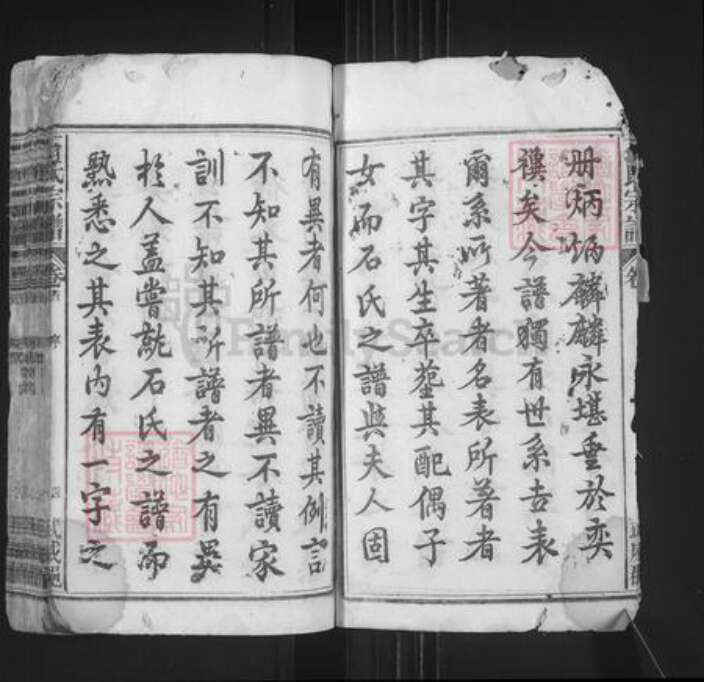 册炳炳麟麟永堪垂於奕
禩矣今譜獨有世系吉表
爾系所著者名表所著者
其字其生卒塟其配偶子
女而石氏之譜與夫人固
有異者何也不讀其例言
不知其所譜者異不讀家
訓不知其所譜者之有異
於人蓋嘗就石氏之譜而
熟悉之其表内有一字之
氏宗譜
卷首
序
四
武威
FamilySearch